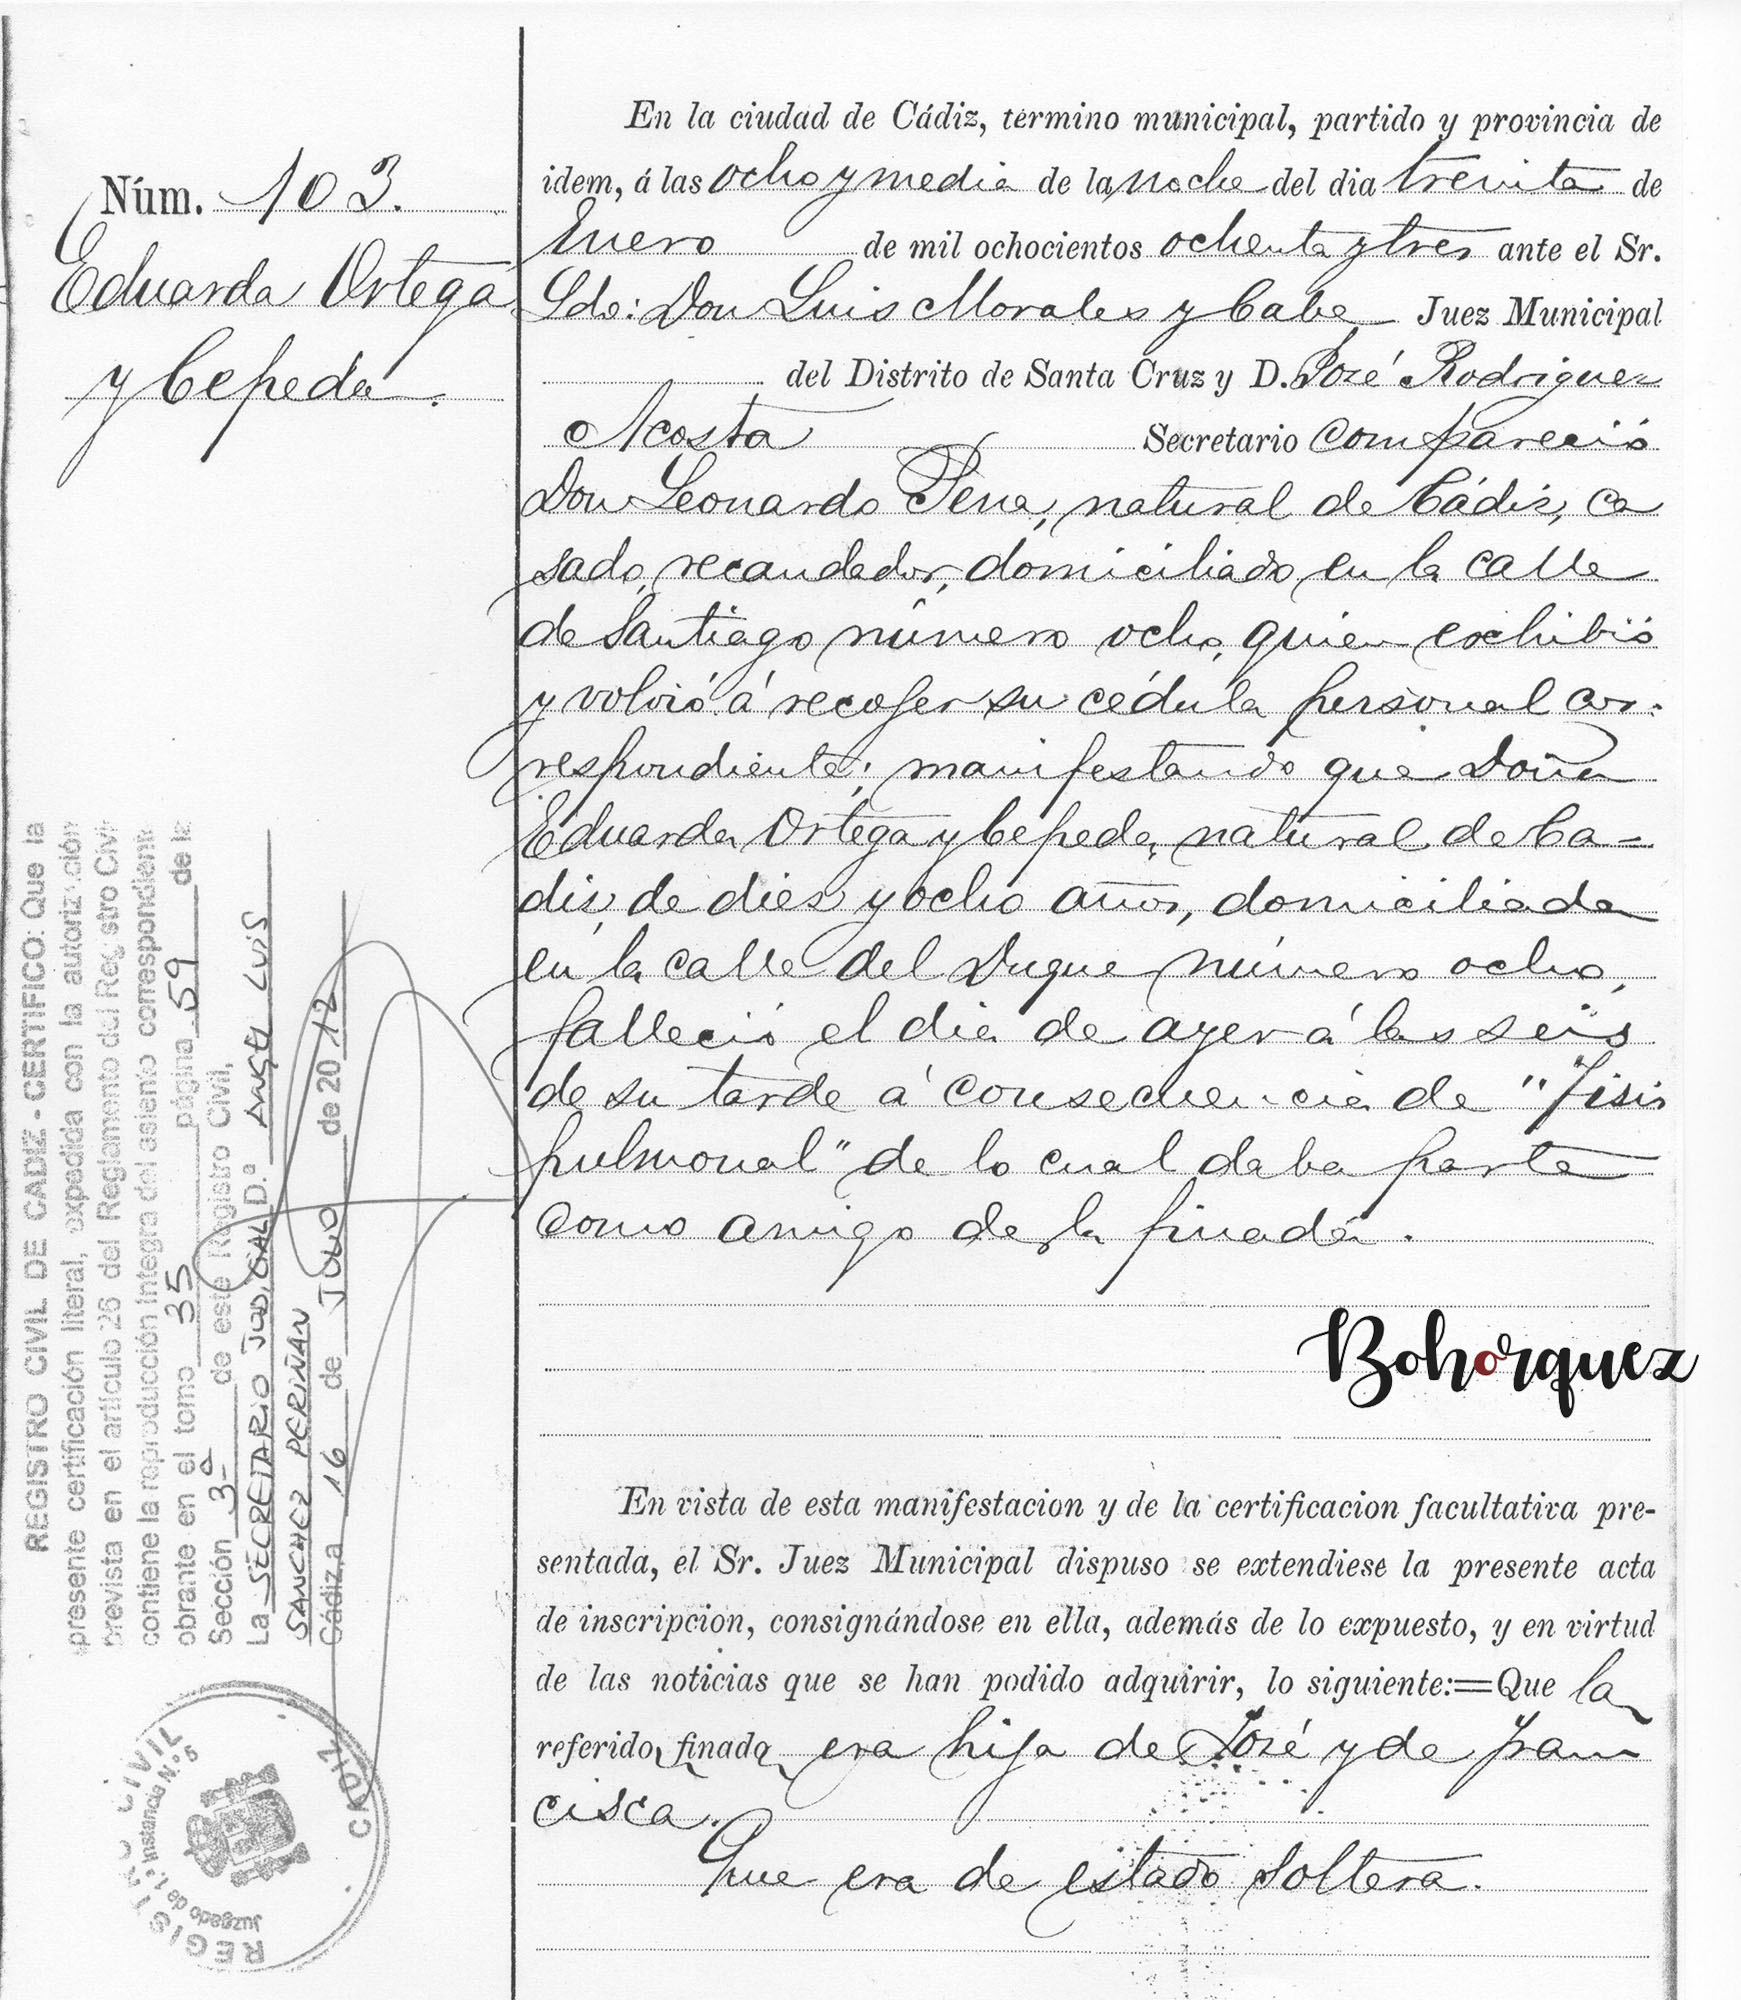 Núm. 103.
Eduarda Ortega
y Cepeda.
En la ciudad de Cádiz, término municipal, partido y provincia de
idem, á las ocho y media de la noche del dia treinta de
Enero de mil ochocientos ochenta y tres ante el Sr.
Ldo: Don Luis Morales y Cabe Juez Municipal
del Distrito de Santa Cruz y D. José Rodriguez
Acosta Secretario compareció
Don Leonardo Pena, natural de Cádiz, ca
sado, recaudador, domiciliado en la calle
de Santiago número ocho, quien exchibió
y volvió á recojer su cédula personal cor-
respondiente; manifestando que Doña
Eduarda Ortega y Cepeda, natural de Ca-
diz, de diez y ocho años, domiciliada
en la calle del Duque número ocho,
falleció el dia de ayer á las seis
de su tarde á consecuencia de "Tisis
pulmonal" de lo cual daba parte
como amigo de la finada.
Bohorquez
En vista de esta manifestacion y de la certificacion facultativa pre-
sentada, el Sr. Juez Municipal dispuso se extendiese la presente acta
de inscripcion, consignándose en ella, además de lo expuesto, y en virtud
de las noticias que se han podido adquirir, lo siguiente:=Que la
referida finada era hija de José y de Fran
cisca.
Que era de estado soltera.
REGISTRO CIVIL DE CADIZ - CERTIFICO: Que la
presente certificación literal, expedida con la autorización
prevista en el artículo 26 del Reglamento del Registro Civil
contiene la reproducción íntegra del asiento correspondiente
obrante en el tomo 35 página 59 de la
Sección 3ª de este Registro Civil,
La SECRETARIO JUDICIAL D.ª ANGEL LUIS
SANCHEZ PERIÑAN
Cádiz a 16 de JULIO de 2012
REGISTRO CIVIL
Juzgado de 1.ª Instancia N.º 5
CADIZ